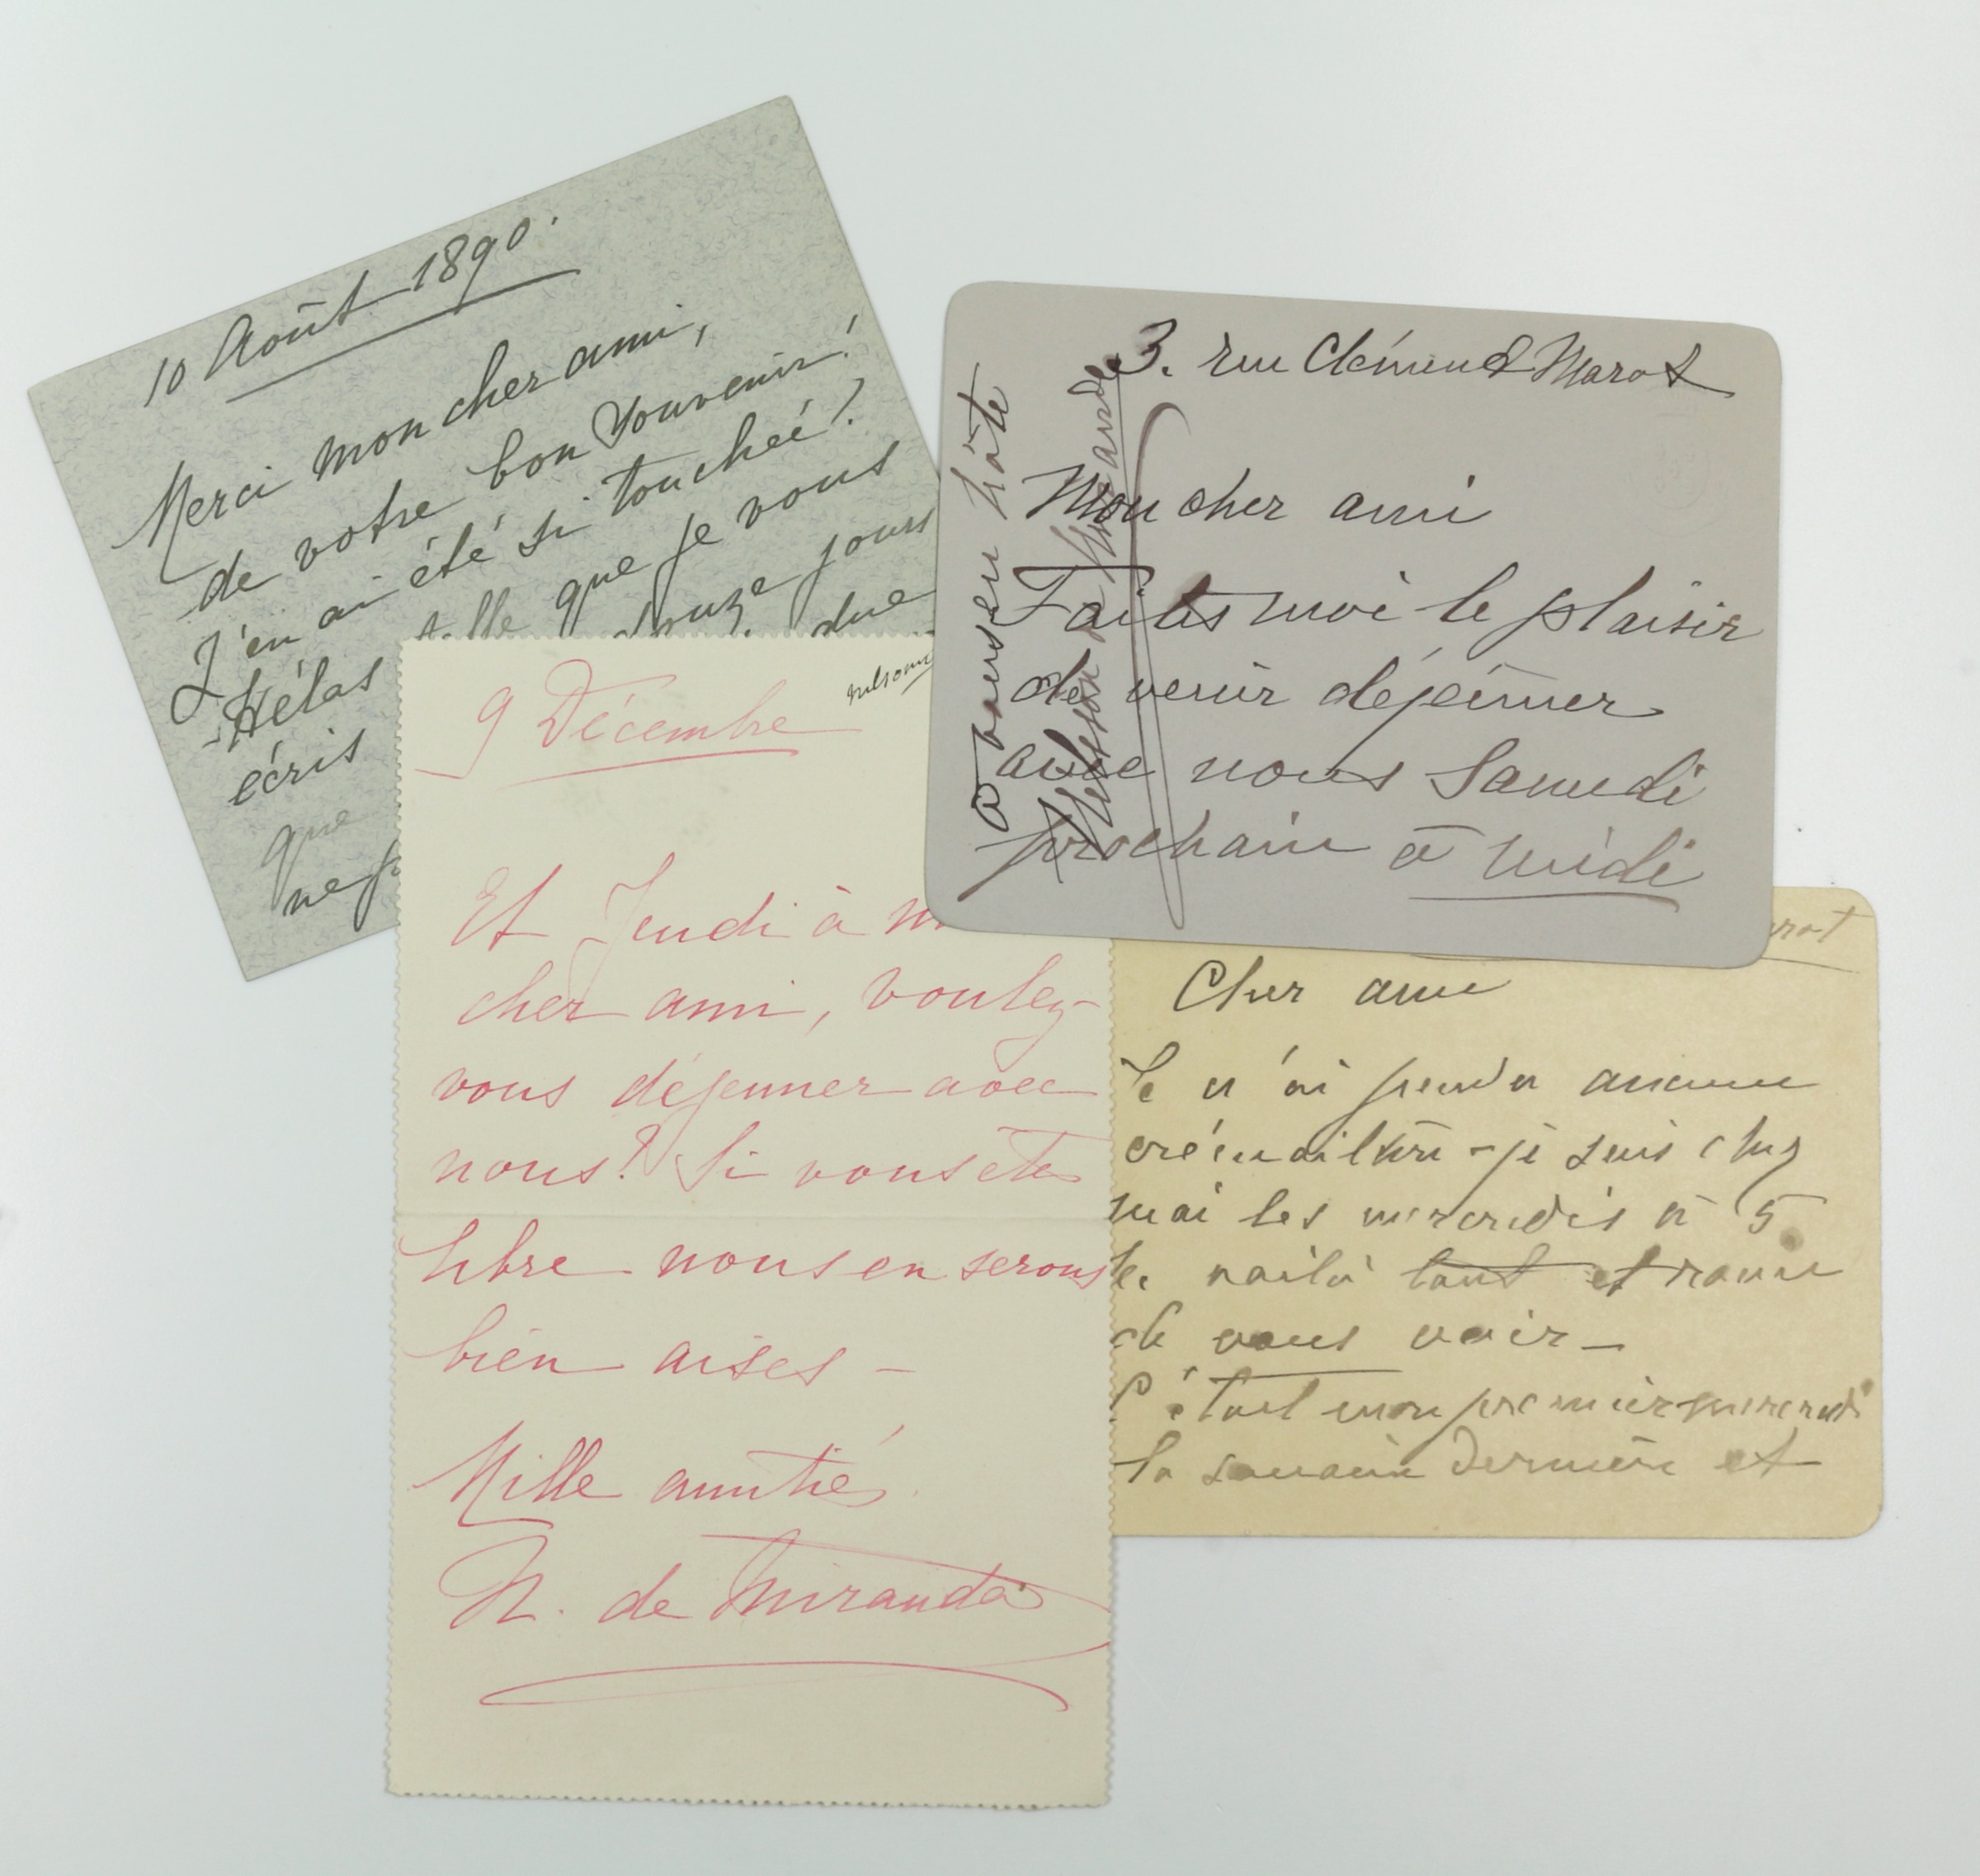 10 Août 1890.
Merci mon cher ami,
de votre bon souvenir!
J'en ai été si touchée!
Hélas telle que je vous
écris douze jours
que due
ne
nilsonn
9 Décembre
Et Jeudi à m
cher ami, voulez-
vous déjeuner avec
nous? Si vous êtes
libre nous en serons
bien aises -
Mille amitiés
N. de Miranda
3. rue Clément Marot
Mon cher ami
Faites moi le plaisir
de venir déjeuner
avec nous Samedi
prochain à midi
à vous en hâte
Nilsson de Miranda
arot
Cher ami
Je n'ai pendu aucune
crémaillère - je suis chez
moi les mercredis à 5
h. voilà tout et ravie
de vous voir -
C'était mon premier mercredi
la semaine dernière et